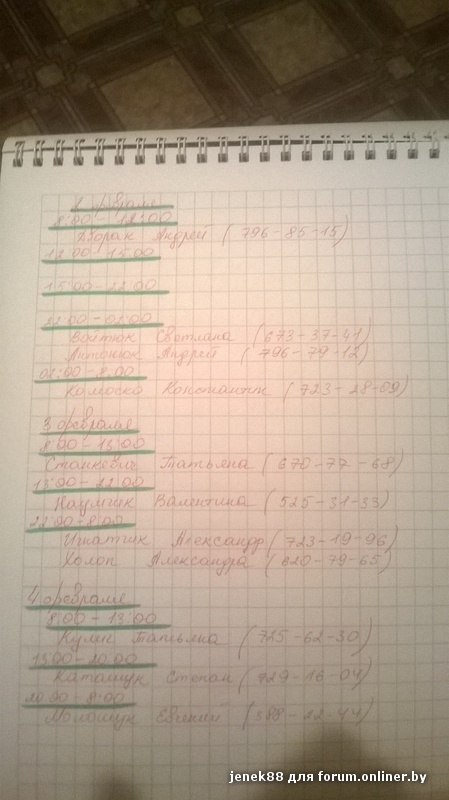 февраля
8:00 - 12:00
Андрей (796-85-15)
12:00 - 15:00
15:00 - 22:00
22:00 - 02:00
Войтюк Светлана (673-37-41)
Антонюк Андрей (796-79-12)
02:00 - 8:00
Константин (723-28-09)
3 февраля
8:00 - 13:00
Станкевич Татьяна (670-77-68)
13:00 - 22:00
Наумчик Валентина (525-31-33)
22:00 - 8:00
Игнатчик Александр (723-19-96)
Холоп Александра (620-79-65)
4 февраля
8:00 - 13:00
Кулич Татьяна (725-62-30)
13:00 - 20:00
Каташук Степан (729-16-04)
20:00 - 8:00
Евгений (588-22-44)
jenek88 для forum.onliner.by